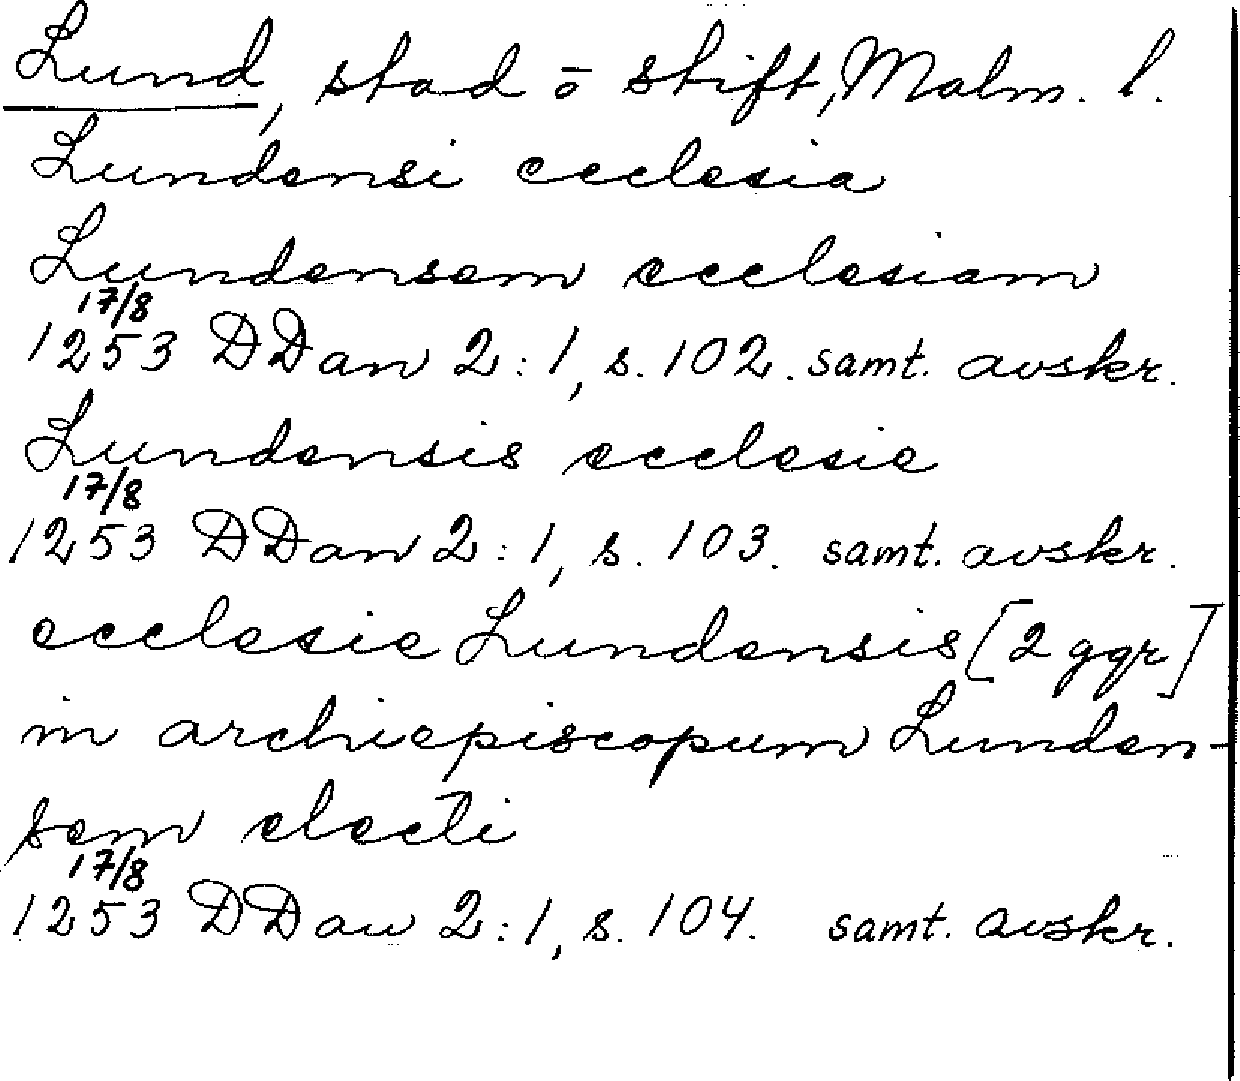 Lund, stad o stift, Malm. l.
Lundensi ecclesia
Lundensem ecclesiam
17/8
1253 DDan 2:1, s. 102. samt. avskr.
Lundensis ecclesie
17/8
1253 DDan 2:1, s. 103. samt. avskr.
ecclesie Lundensis [2 ggr]
in archiepiscopum Lunden-
sem electi
17/8
1253 DDan 2:1, s. 104. samt. avskr.